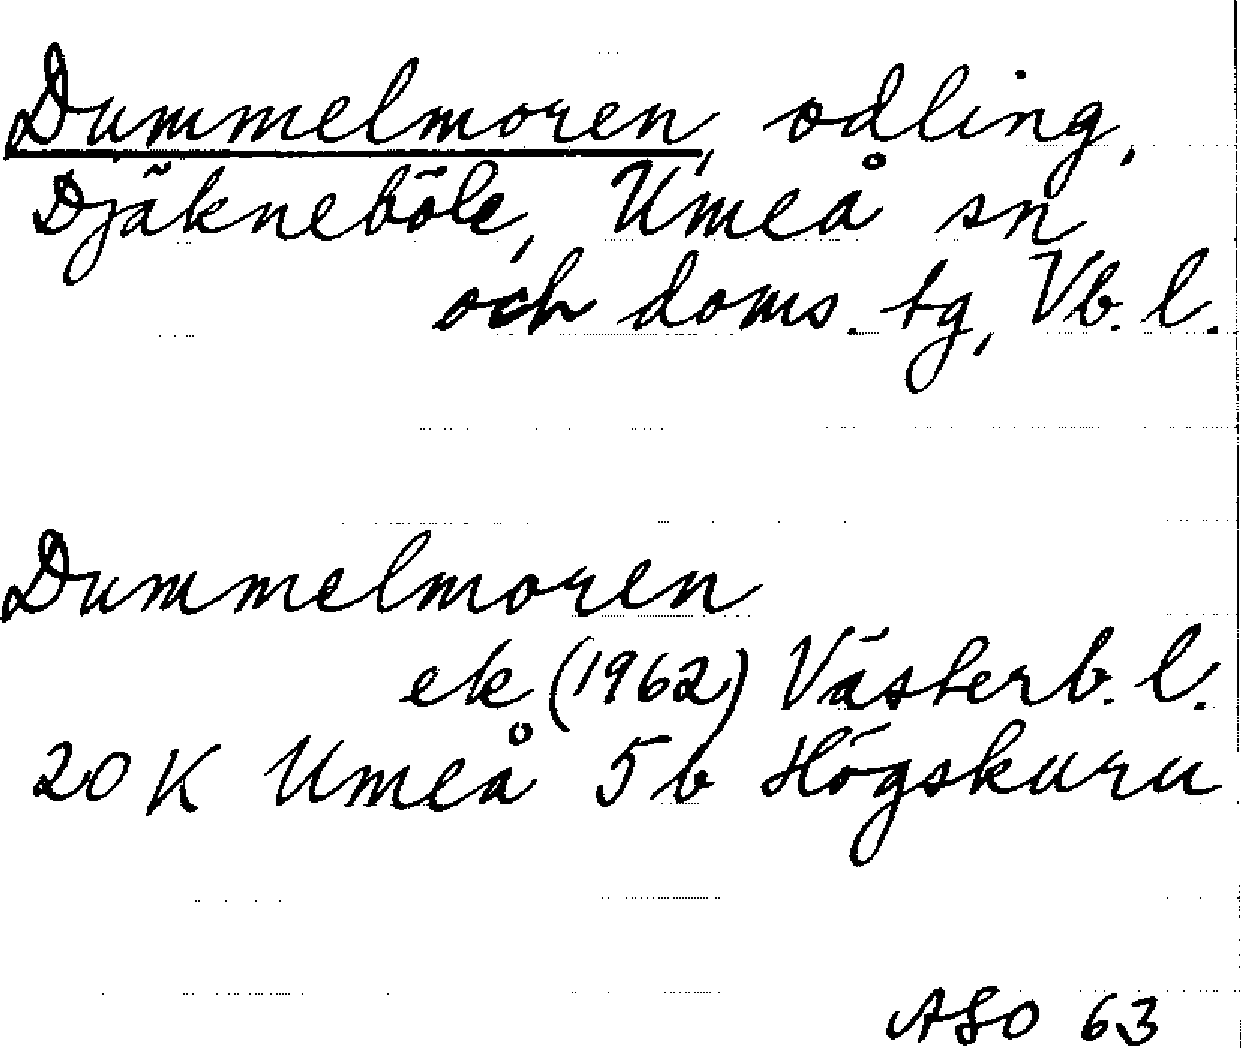 Dummelmoren, odling,
Djäkneböle, Umeå sn
och doms. tg, Vb. l.
Dummelmoren
ek (1962) Västerb. l.
20 K Umeå 5 b Högskuru
ASO 63